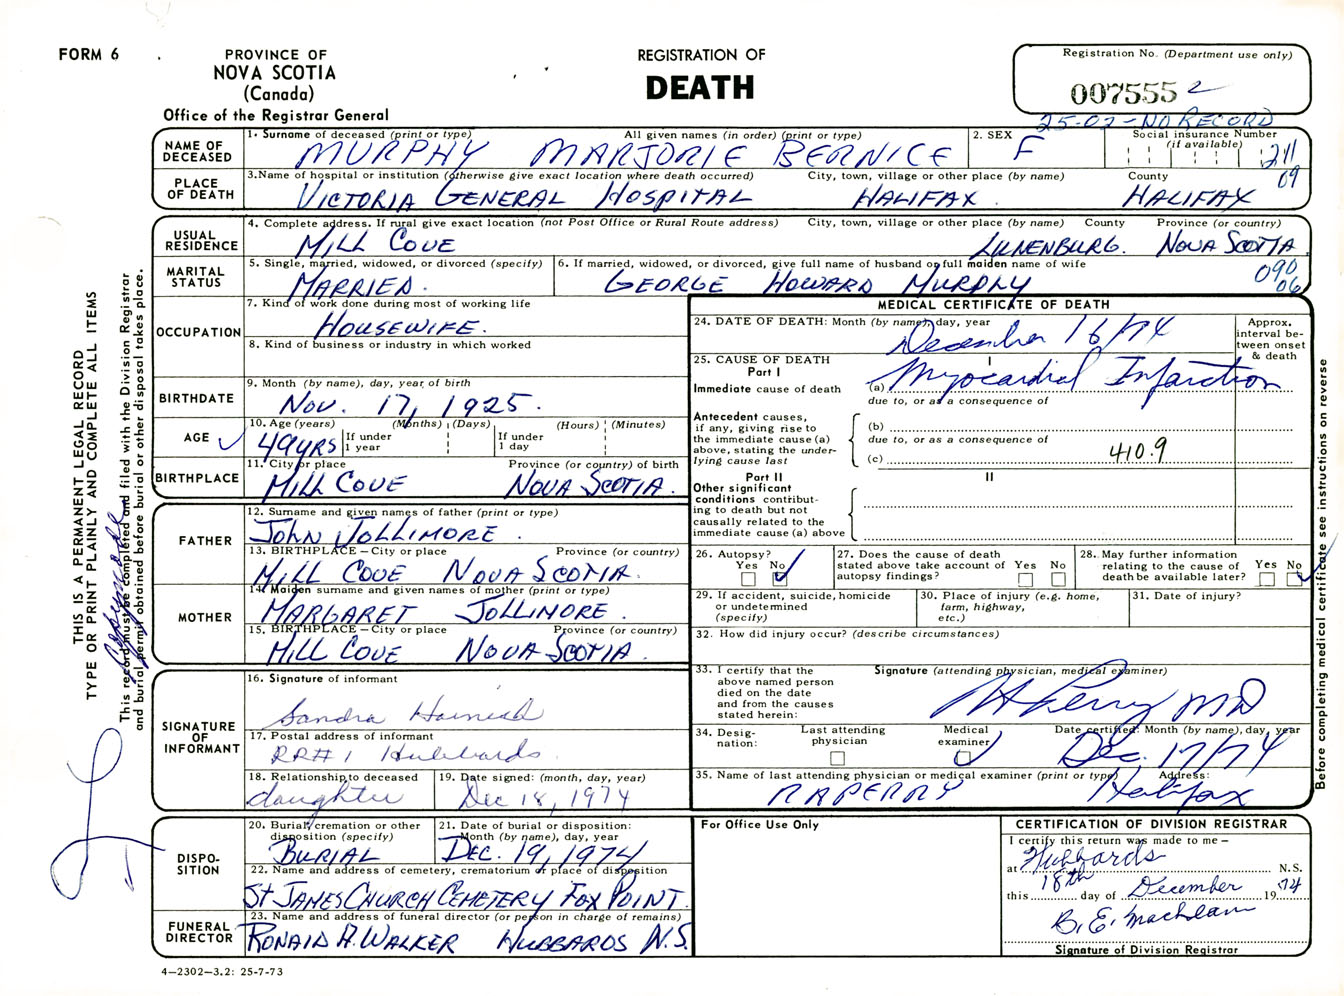 FORM 6
PROVINCE OF
NOVA SCOTIA
(Canada)
Office of the Registrar General
REGISTRATION OF
DEATH
Registration No. (Department use only)
007555 2
25-02-NO RECORD
NAME OF DECEASED
1. Surname of deceased (print or type) All given names (in order) (print or type)
MURPHY MARJORIE BERNICE
2. SEX
F
Social insurance Number
(if available)
211
09
PLACE OF DEATH
3. Name of hospital or institution (otherwise give exact location where death occurred) City, town, village or other place (by name) County
VICTORIA GENERAL HOSPITAL HALIFAX HALIFAX
USUAL RESIDENCE
4. Complete address. If rural give exact location (not Post Office or Rural Route address) City, town, village or other place (by name) County Province (or country)
MILL COVE LUNENBURG. NOVA SCOTIA
MARITAL STATUS
5. Single, married, widowed, or divorced (specify)
MARRIED.
6. If married, widowed, or divorced, give full name of husband or full maiden name of wife
GEORGE HOWARD MURPHY
090
06
OCCUPATION
7. Kind of work done during most of working life
HOUSEWIFE.
8. Kind of business or industry in which worked
BIRTHDATE
9. Month (by name), day, year of birth
NOV. 17, 1925.
AGE
10. Age (years) (Months) (Days) (Hours) (Minutes)
49 YRS
If under 1 year
If under 1 day
BIRTHPLACE
11. City or place Province (or country) of birth
MILL COVE NOVA SCOTIA.
FATHER
12. Surname and given names of father (print or type)
JOHN JOLLIMORE.
13. BIRTHPLACE – City or place Province (or country)
MILL COVE NOVA SCOTIA.
MOTHER
14. Maiden surname and given names of mother (print or type)
MARGARET JOLLIMORE.
15. BIRTHPLACE – City or place Province (or country)
MILL COVE NOVA SCOTIA.
SIGNATURE OF INFORMANT
16. Signature of informant
Sandra
17. Postal address of informant
RR#1 Hubbards
18. Relationship to deceased
daughter
19. Date signed: (month, day, year)
Dec 18, 1974
DISPO-
SITION
20. Burial, cremation or other disposition (specify)
BURIAL
21. Date of burial or disposition: Month (by name), day, year
DEC. 19, 1974
22. Name and address of cemetery, crematorium or place of disposition
ST JAMES CHURCH CEMETERY FOX POINT.
FUNERAL DIRECTOR
23. Name and address of funeral director (or person in charge of remains)
RONALD A. WALKER HUBBARDS N.S.
4–2302–3.2: 25-7-73
MEDICAL CERTIFICATE OF DEATH
24. DATE OF DEATH: Month (by name), day, year
December 16/74
Approx. interval be-
tween onset & death
25. CAUSE OF DEATH
Part I
I
Immediate cause of death
(a) Myocardial Infarction
due to, or as a consequence of
Antecedent causes, if any, giving rise to the immediate cause (a) above, stating the under-
lying cause last
(b)
due to, or as a consequence of
(c) 410.9
Part II
II
Other significant conditions contribut-
ing to death but not causally related to the immediate cause (a) above
26. Autopsy?
Yes No
27. Does the cause of death stated above take account of autopsy findings?
Yes No
28. May further information relating to the cause of death be available later?
Yes No
29. If accident, suicide, homicide or undetermined (specify)
30. Place of injury (e.g. home, farm, highway, etc.)
31. Date of injury?
32. How did injury occur? (describe circumstances)
33. I certify that the above named person died on the date and from the causes stated herein:
Signature (attending physician, medical examiner)
Perry MD
34. Desig-
nation:
Last attending physician
Medical examiner
Date certified: Month (by name), day, year
Dec. 17/74
35. Name of last attending physician or medical examiner (print or type) Address:
RAPERRY Halifax
For Office Use Only
CERTIFICATION OF DIVISION REGISTRAR
I certify this return was made to me –
at Hubbards N.S.
this 18th day of December 1974
Signature of Division Registrar
THIS IS A PERMANENT LEGAL RECORD
TYPE OR PRINT PLAINLY AND COMPLETE ALL ITEMS
This record must be completed and filed with the Division Registrar
and burial permit obtained before burial or other disposal takes place.
Before completing medical certificate see instructions on reverse